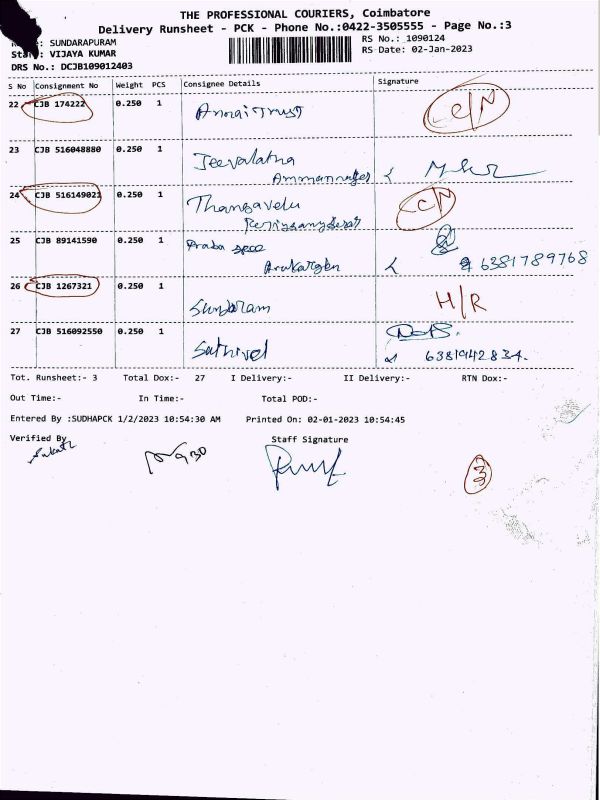 THE PROFESSIONAL COURIERS, Coimbatore
Delivery Runsheet - PCK - Phone No.:0422-3505555 - Page No.:3
: SUNDARAPURAM
RS No.: 1090124
: VIJAYA KUMAR
RS Date: 02-Jan-2023
DRS No.: DCJB109012403
S No Consignment No Weight PCS Consignee Details Signature
22 CJB 174222 0.250 1 C/N
23 CJB 516048880 0.250 1 Jeevalatha
Ammannagar
24 CJB 516149023 0.250 1 Thangavelu C/N
25 CJB 89141590 0.250 1
6381789768
26 CJB 1267321 0.250 1 Sundaram H/R
27 CJB 516092550 0.250 1 Sathivel
6381942834.
Tot. Runsheet:- 3 Total Dox:- 27 I Delivery:- II Delivery:- RTN Dox:-
Out Time:- In Time:- Total POD:-
Entered By :SUDHAPCK 1/2/2023 10:54:30 AM Printed On: 02-01-2023 10:54:45
Verified By Staff Signature
3